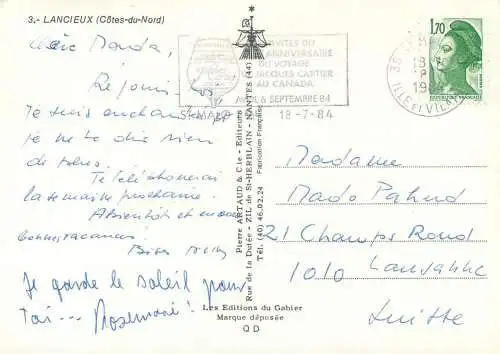 3.- LANCIEUX (Côtes-du-Nord)
Je suis enchant
je ne te dis rien
de plus.
Te téléphonerai
la semaine prochaine.
A bientôt et
bonnes vacances!
Je garde le soleil pour
toi... Rosemarie!
ANNIVERSAIRE
DU VOYAGE
JACQUES CARTIER
AU CANADA
AVRIL & SEPTEMBRE 84
ST MALO
18-7-84
1,70
REPUBLIQUE FRANÇAISE
ILLE ET VILAINE
Pierre ARTAUD & Cie - Editeurs
Rue de la Dutée - ZIL de St-HERBLAIN - NANTES (44)
Tél. (40) 46.02.24 Fabrication Française
Madame
Mado Pahud
21 Champs Rond
1010 Lausanne
Suisse
Les Editions du Gabier
Marque déposée